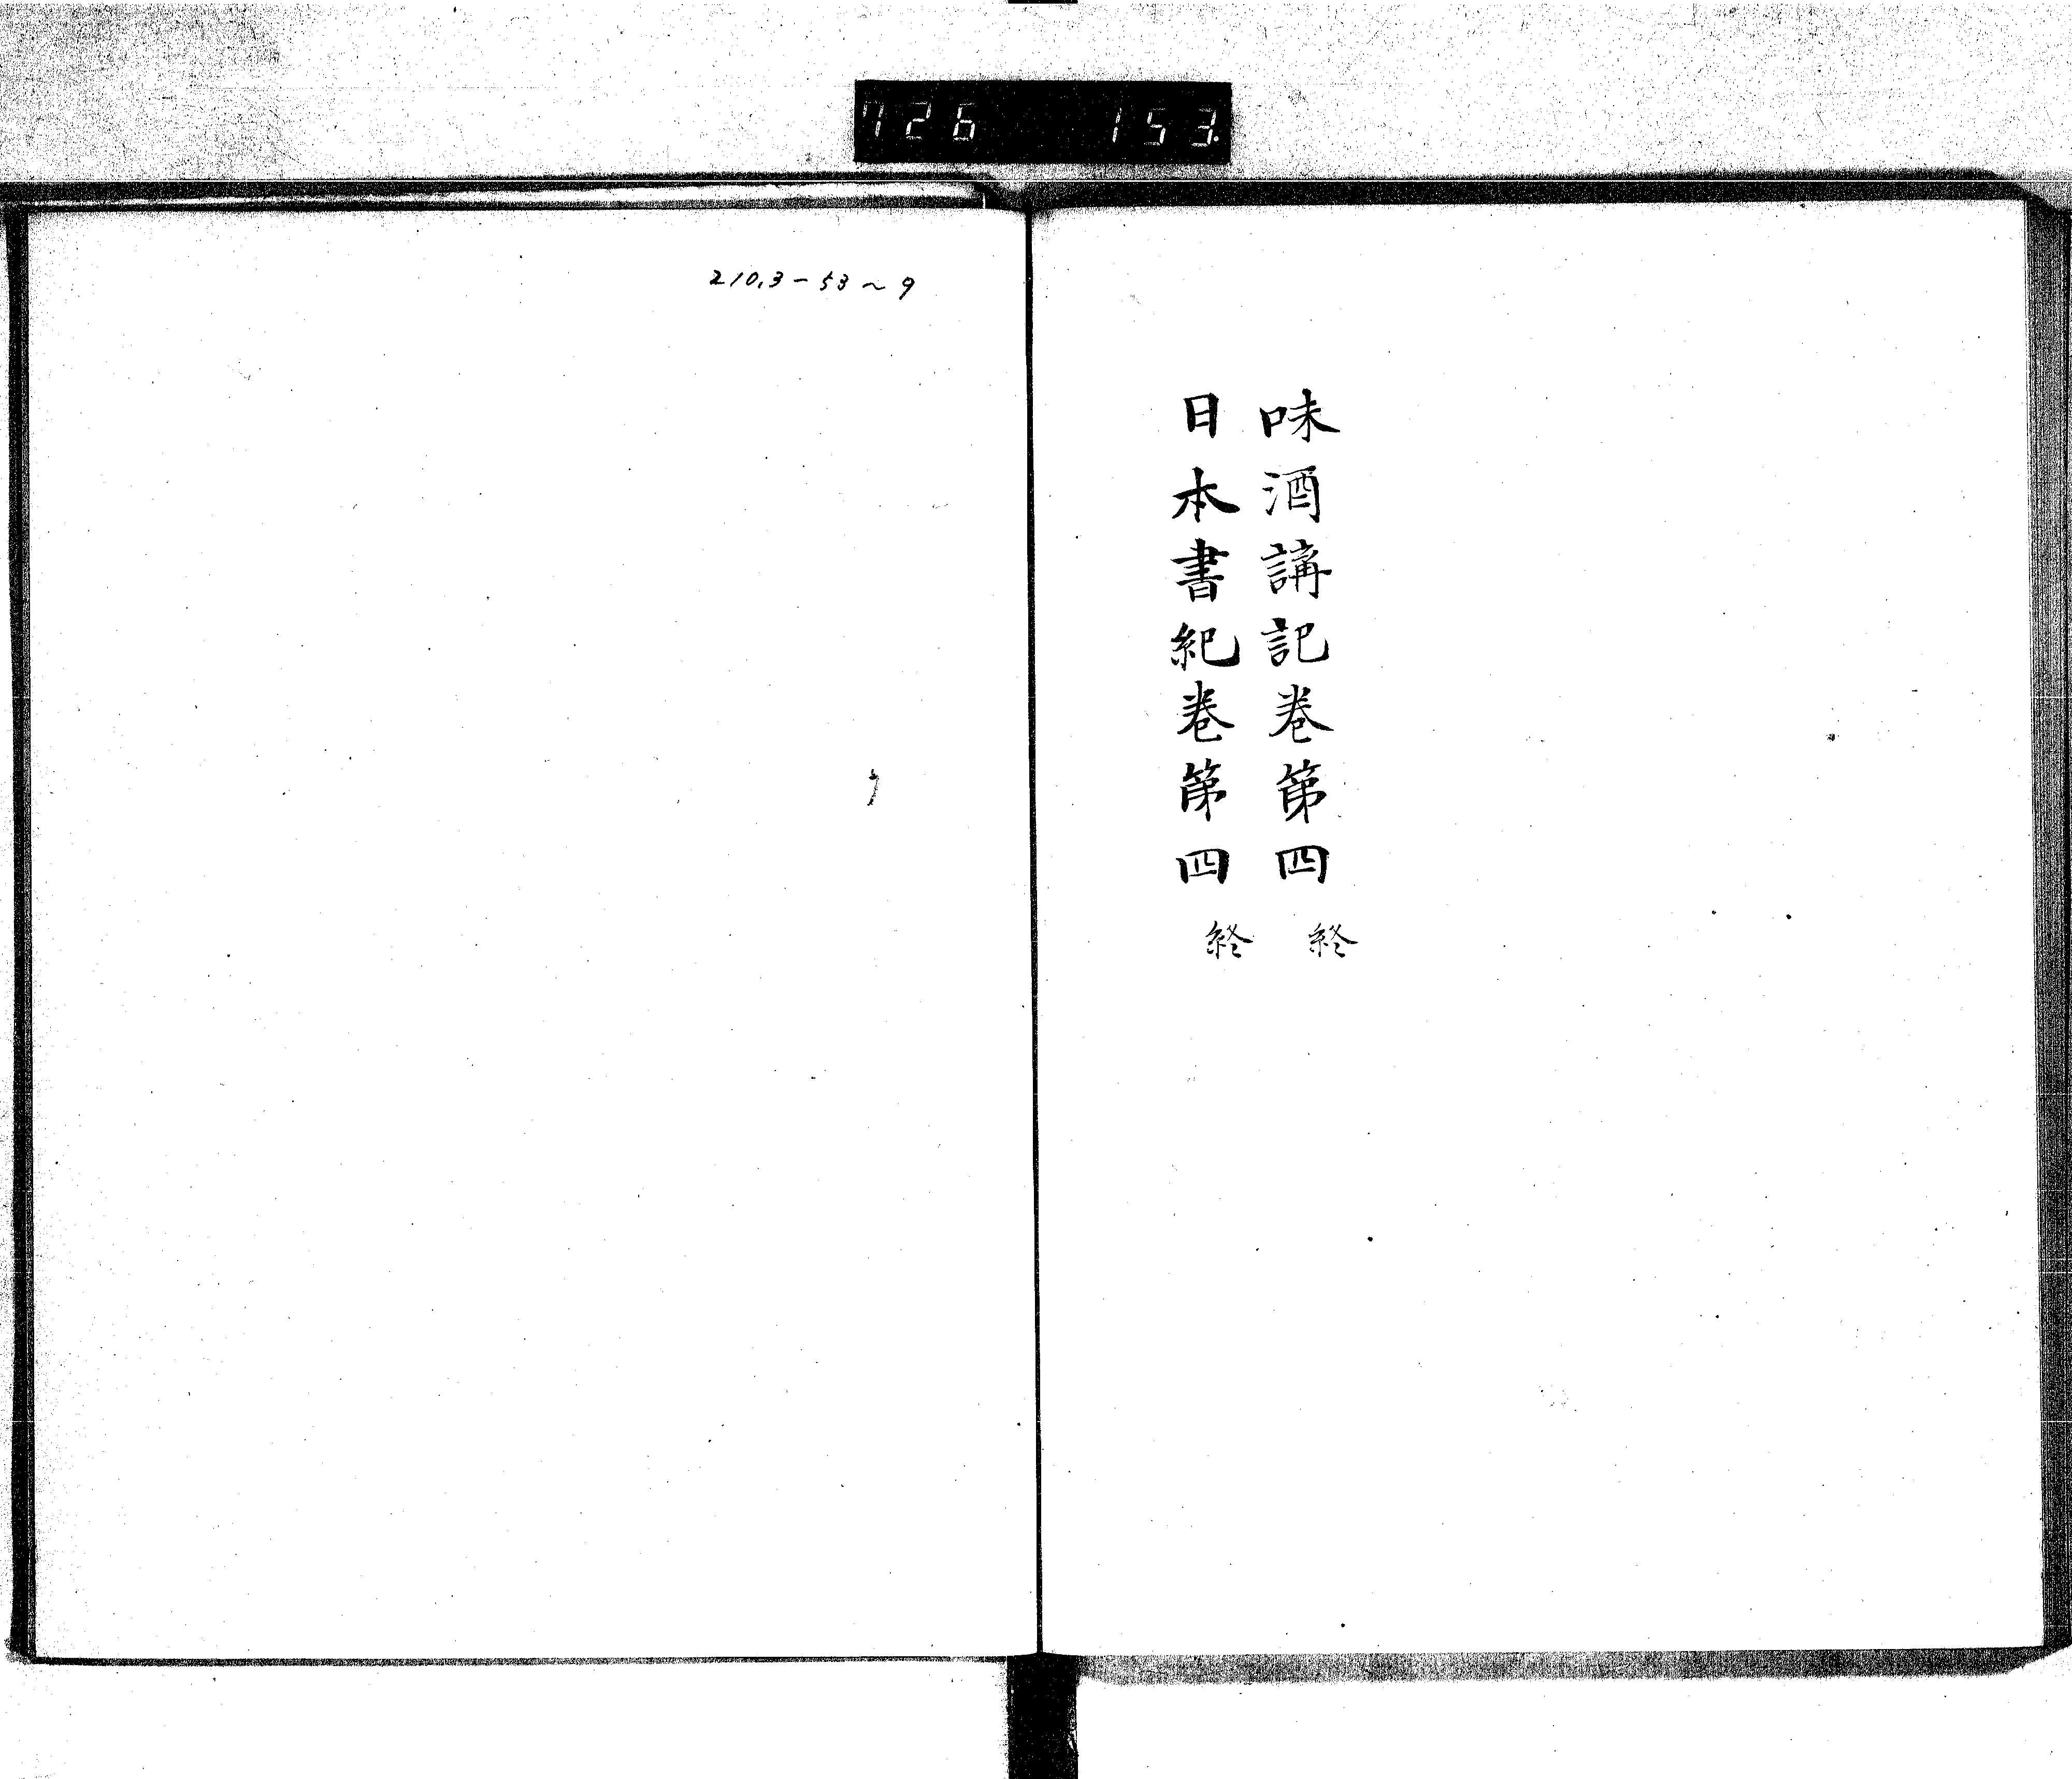 726 153
味酒講記巻第四 終
日本書紀巻第四 終
210.3-53~9